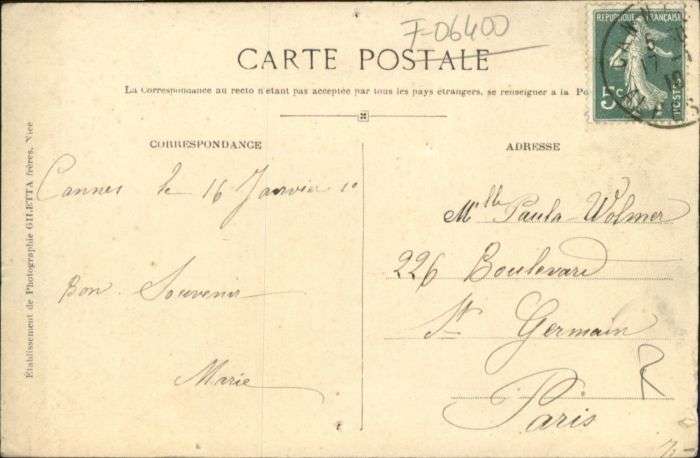 F-06400
CARTE POSTALE
La Correspondance au recto n'étant pas acceptée par tous les pays étrangers, se renseigner a la Po
REPUBLIQUE FRANÇAISE
5c
POSTES
CANNES
10
CORRESPONDANCE
Cannes le 16 Janvier 10
Bon Souvenir
Marie
ADRESSE
Mlle Paula Wolmer
226 Boulevard
St Germain
Paris
R
Établissement de Photographie GILETTA frères, Nice